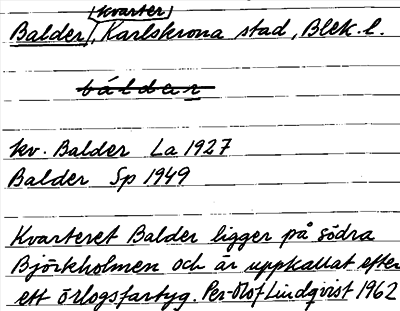 Balder, kvarter, Karlskrona stad, Blek. l.
báldar
kv. Balder La 1927
Balder Sp 1949
Kvarteret Balder ligger på södra
Björkholmen och är uppkallat efter
ett örlogsfartyg. Per-Olof Lindqvist 1962